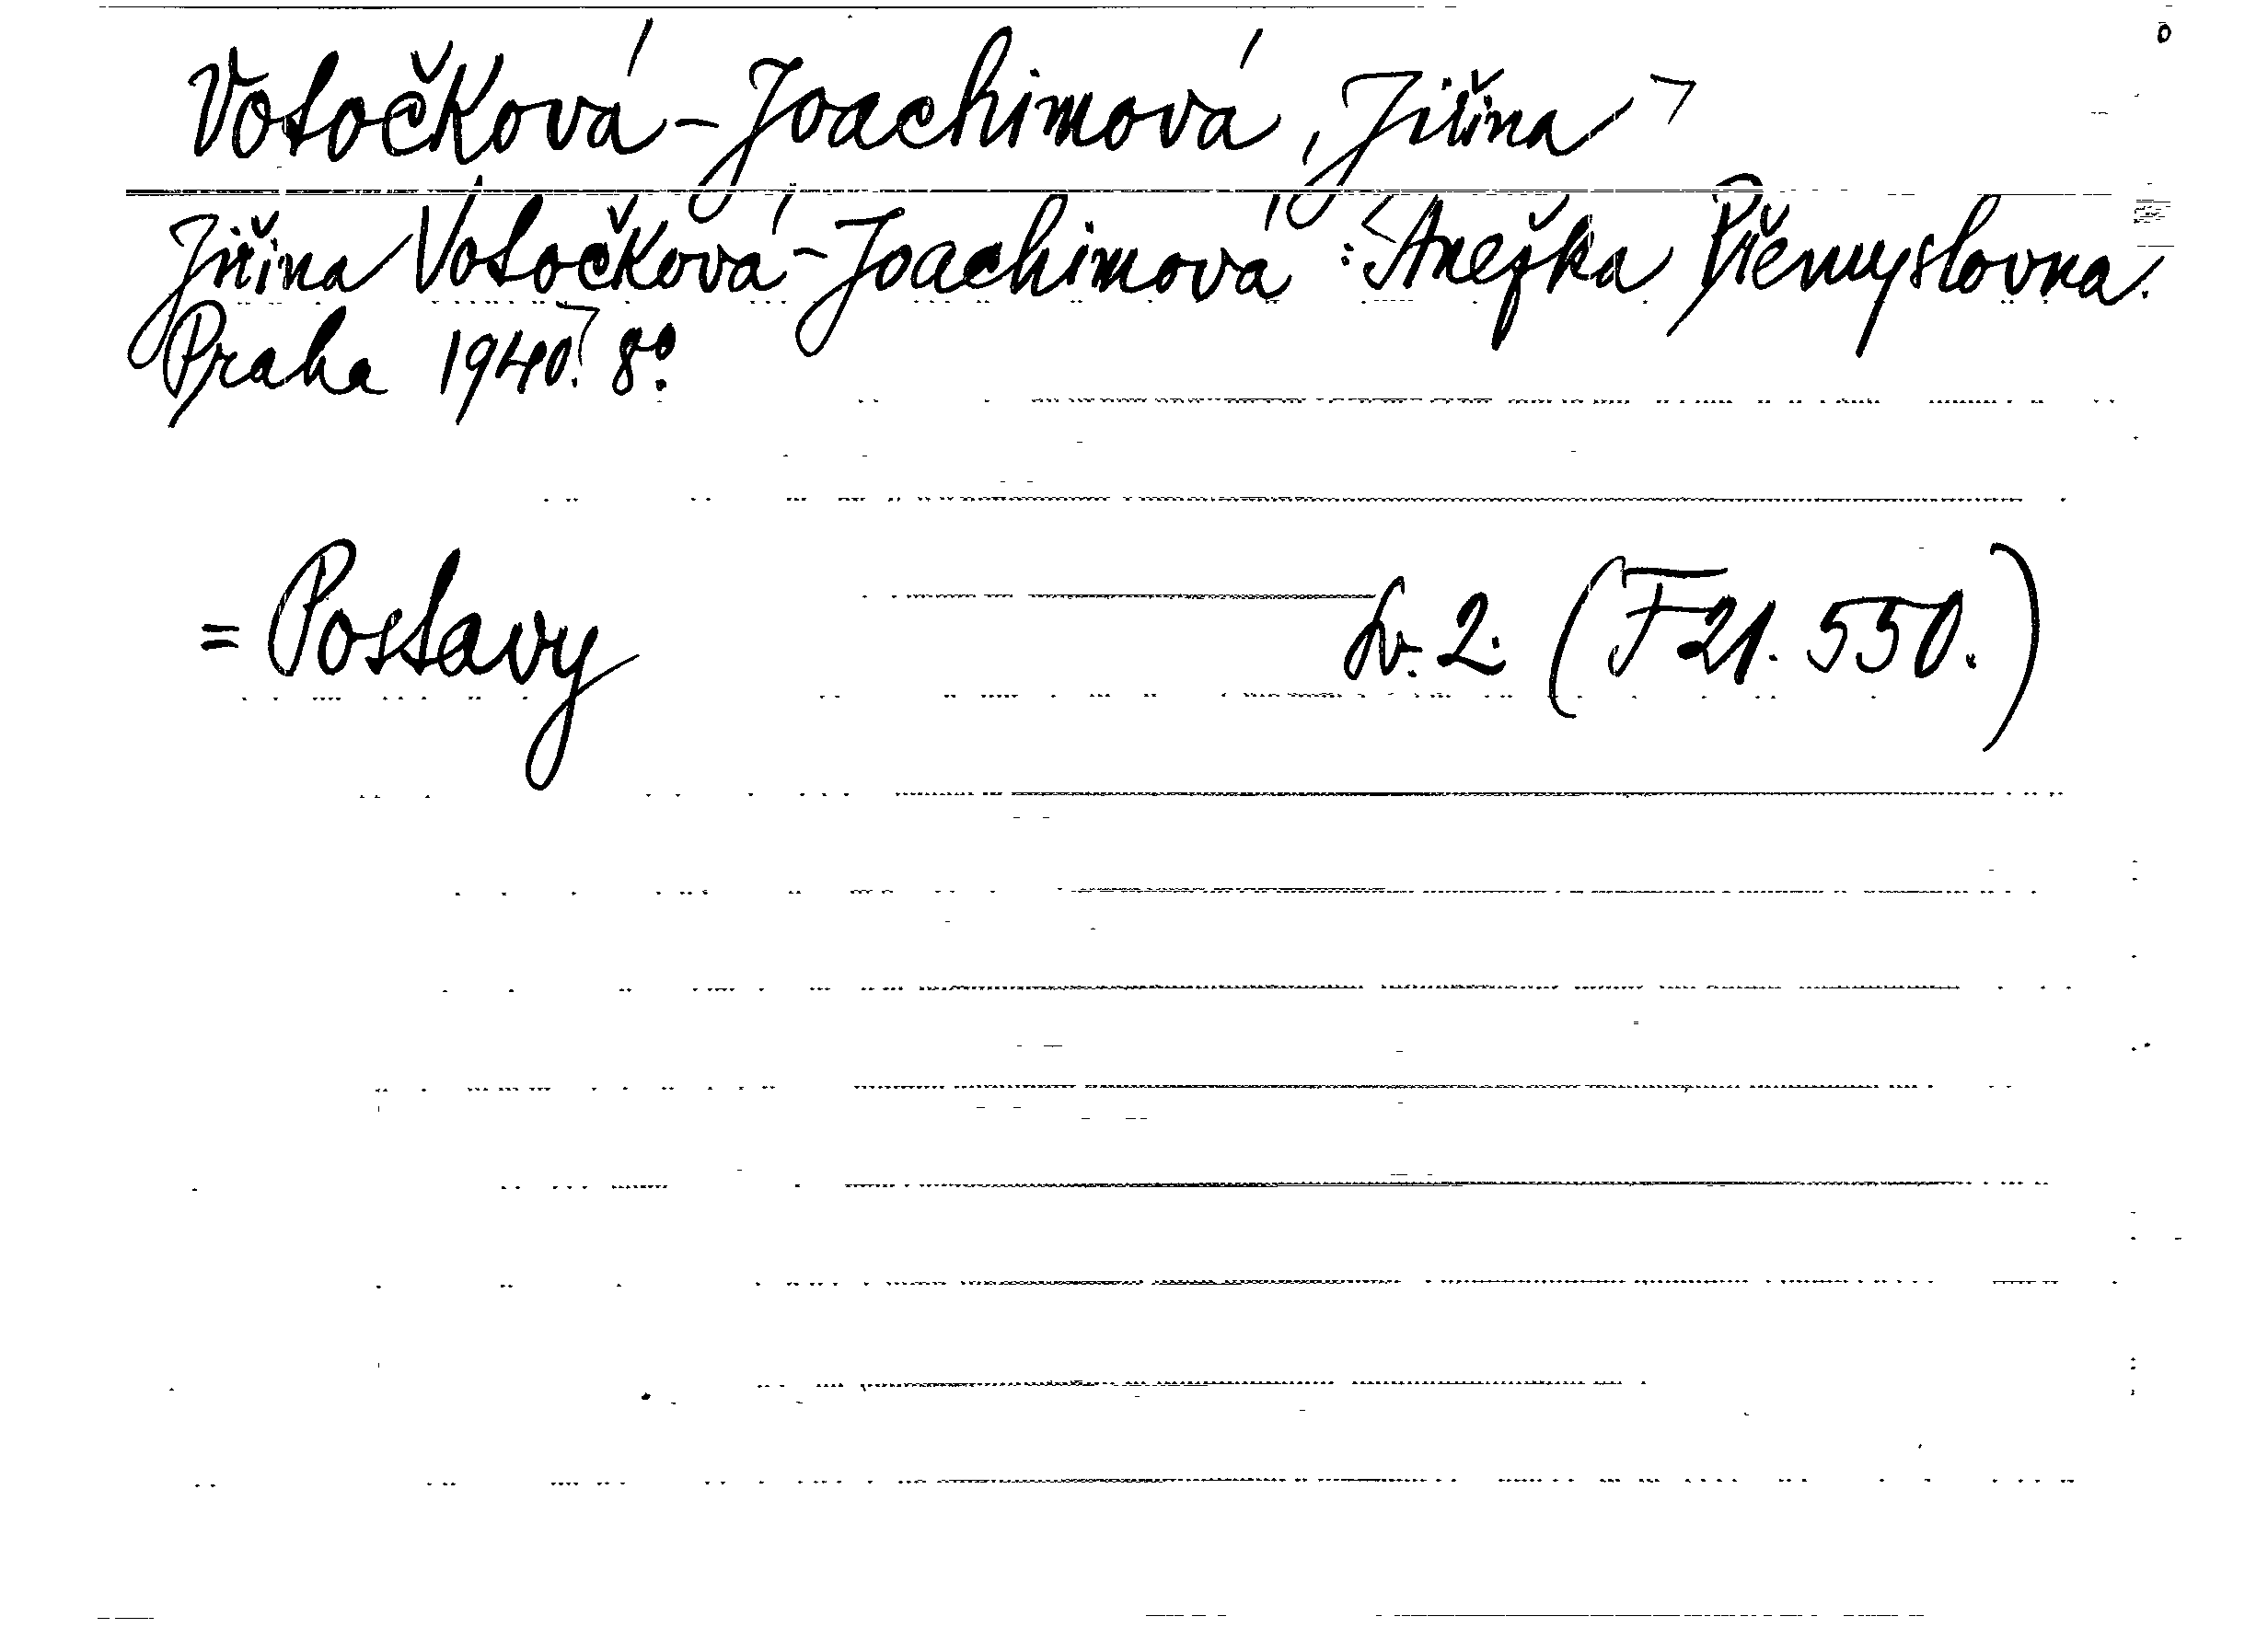 Votočková-Joachimová, Jiřina ¬
Jiřina Votočková-Joachimová: <Anežka Přemyslovna.
Praha 1940.¬ 8°.
= Postavy sv. 2. (F 21.550.)